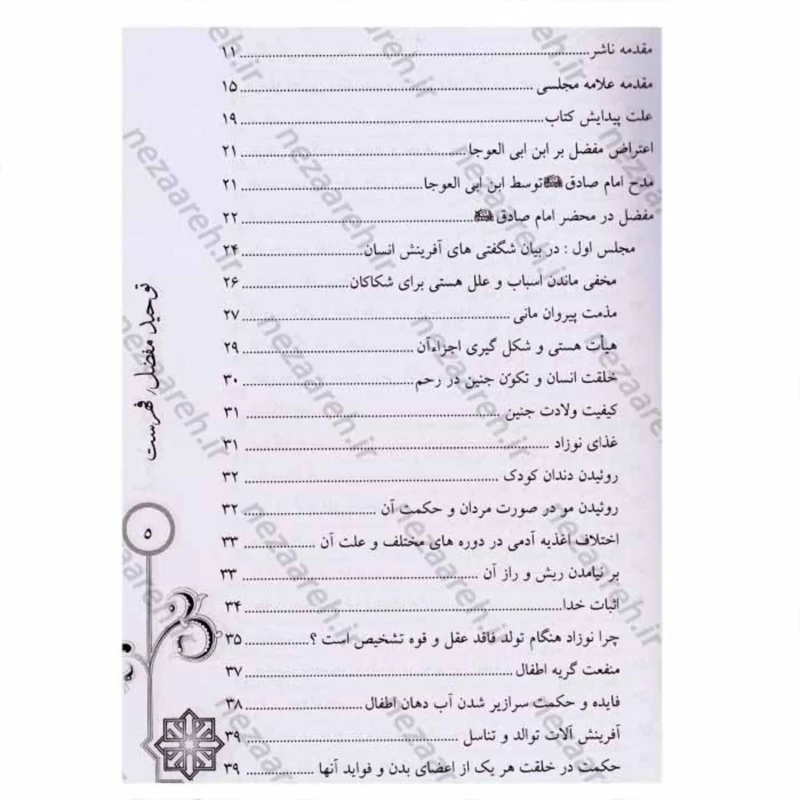 مقدمه ناشر ........ ۱۱
مقدمه علامه مجلسی ........ ۱۵
علت پیدایش کتاب ........ ۱۹
اعتراض مفضل بر ابن ابی العوجا ........ ۲۱
مدح امام صادق توسط ابن ابی العوجا ........ ۲۱
مفضل در محضر امام صادق ........ ۲۲
مجلس اول : در بیان شگفتی های آفرینش انسان ........ ۲۴
مخفی ماندن اسباب و علل هستی برای شکاکان ........ ۲۶
مذمت پیروان مانی ........ ۲۷
هیأت هستی و شکل گیری اجزاءآن ........ ۲۹
خلقت انسان و تکوّن جنین در رحم ........ ۳۰
کیفیت ولادت جنین ........ ۳۱
غذای نوزاد ........ ۳۱
روئیدن دندان کودک ........ ۳۲
روئیدن مو در صورت مردان و حکمت آن ........ ۳۲
اختلاف اغذیه آدمی در دوره های مختلف و علت آن ........ ۳۳
بر نیامدن ریش و راز آن ........ ۳۳
اثبات خدا ........ ۳۴
چرا نوزاد هنگام تولد فاقد عقل و قوه تشخیص است ؟ ........ ۳۵
منفعت گریه اطفال ........ ۳۷
فایده و حکمت سرازیر شدن آب دهان اطفال ........ ۳۸
آفرینش آلات توالد و تناسل ........ ۳۹
حکمت در خلقت هر یک از اعضای بدن و فواید آنها ........ ۳۹
توحید مفضل / فهرست
۵
nezaareh.ir